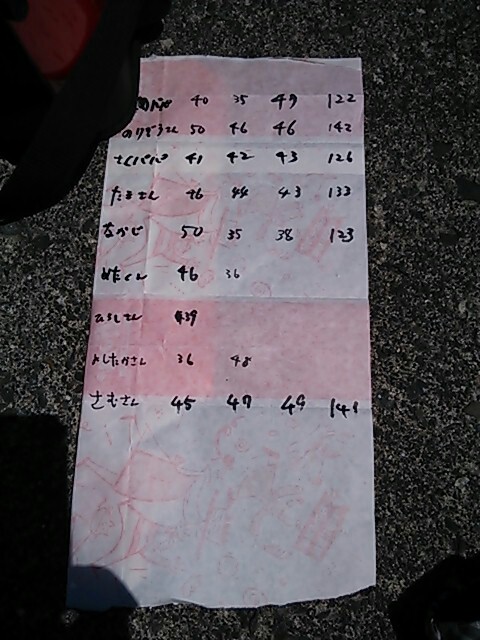 40 35 47 122
50 46 46 142
さくパパ 41 42 43 126
たまさん 46 44 43 133
ながじ 50 35 38 123
46 36
ひろしさん 39
よしたかさん 36 48
さむさん 45 47 49 141